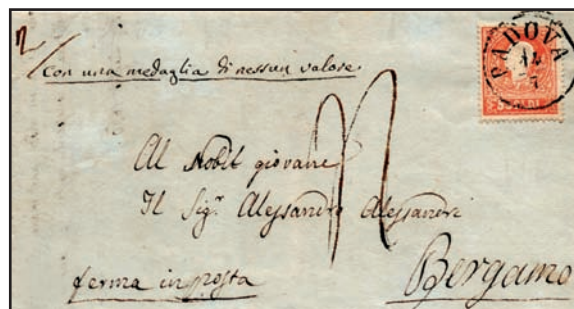 con una medaglia di nessun valore
PADOVA
14
7
SOLDI
Al Nobil giovane
Il Sigr. Alessandro Alessandri
ferma in posta
Bergamo